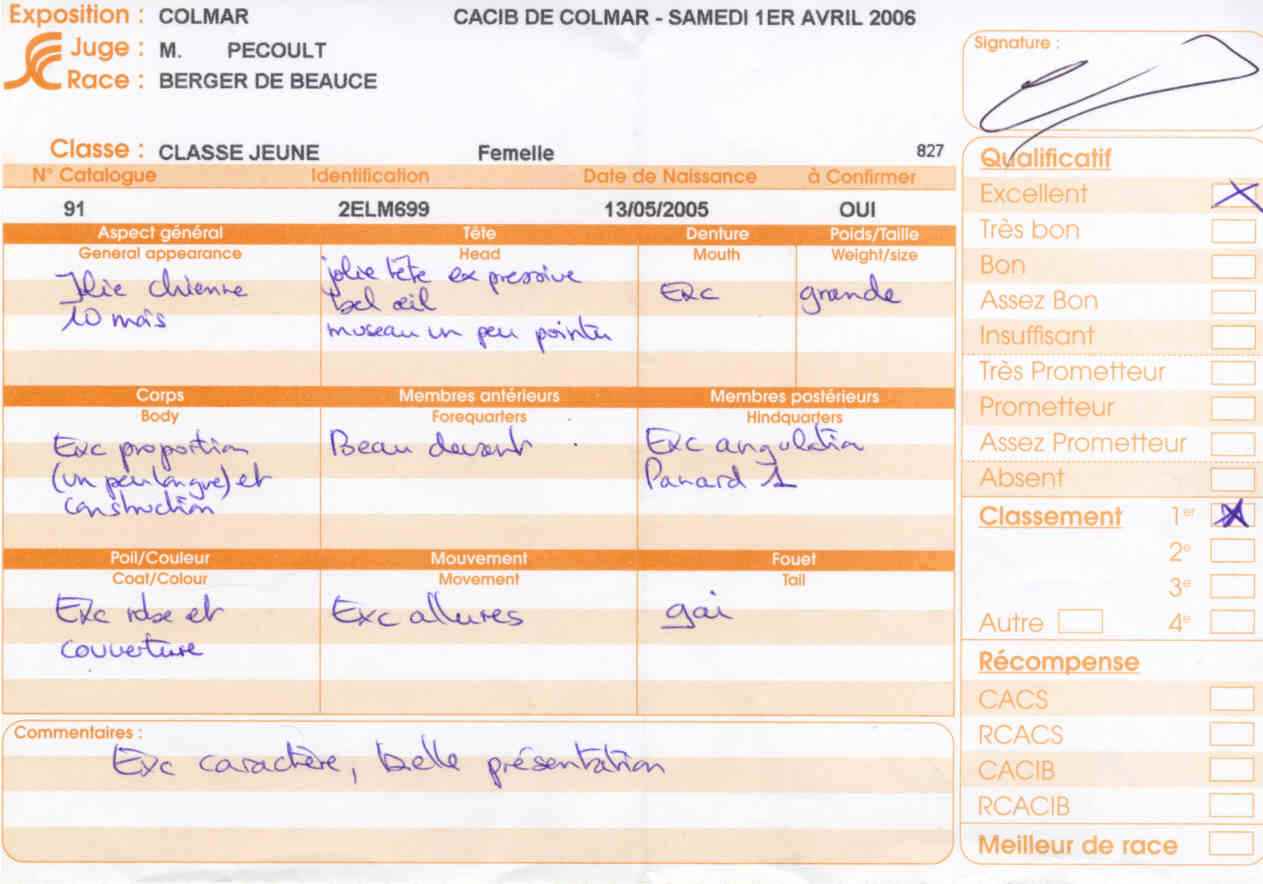 Exposition : COLMAR CACIB DE COLMAR - SAMEDI 1ER AVRIL 2006
Juge : M. PECOULT
Race : BERGER DE BEAUCE
Signature :
Classe : CLASSE JEUNE Femelle 827
N° Catalogue Identification Date de Naissance à Confirmer
91 2ELM699 13/05/2005 OUI
Aspect général Tête Denture Poids/Taille
General appearance Head Mouth Weight/size
Jolie chienne
10 mois
jolie tête expressive
bel œil
museau un peu pointu
Exc
grande
Corps Membres antérieurs Membres postérieurs
Body Forequarters Hindquarters
Exc proportion
(un peu longue) et
construction
Beau devant
Exc angulation
Panard 1
Poil/Couleur Mouvement Fouet
Coat/Colour Movement Tail
Exc robe et
couverture
Exc allures
gai
Commentaires :
Exc caractère, belle présentation
Qualificatif
Excellent
Très bon
Bon
Assez Bon
Insuffisant
Très Prometteur
Prometteur
Assez Prometteur
Absent
Classement 1er
2e
3e
Autre 4e
Récompense
CACS
RCACS
CACIB
RCACIB
Meilleur de race